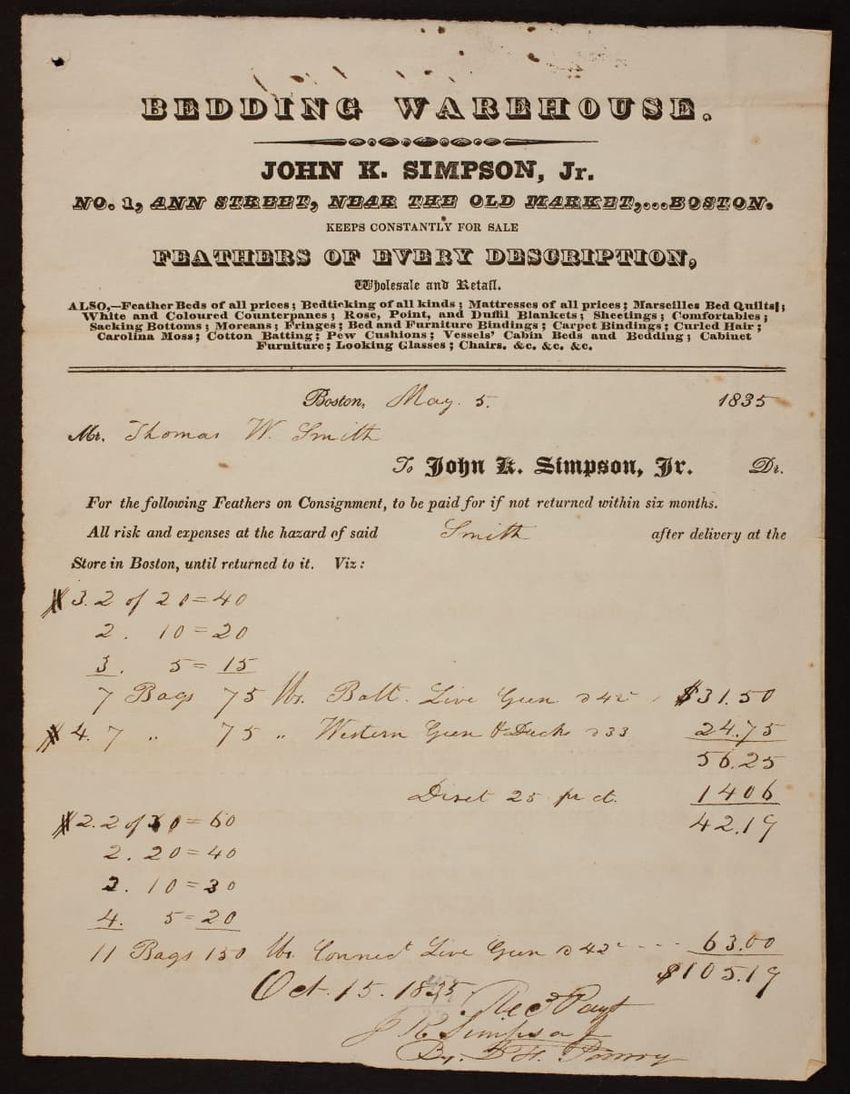 BEDDING WAREHOUSE.
JOHN K. SIMPSON, Jr.
NO. 1, ANN STREET, NEAR THE OLD MARKET,...BOSTON.
KEEPS CONSTANTLY FOR SALE
FEATHERS OF EVERY DESCRIPTION,
Wholesale and Retail.
ALSO,—Feather Beds of all prices; Bedticking of all kinds; Mattresses of all prices; Marseilles Bed Quilts;
White and Coloured Counterpanes; Rose, Point, and Duffil Blankets; Sheetings; Comfortables;
Sacking Bottoms; Moreans; Fringes; Bed and Furniture Bindings; Carpet Bindings; Curled Hair;
Carolina Moss; Cotton Batting; Pew Cushions; Vessels' Cabin Beds and Bedding; Cabinet
Furniture; Looking Glasses; Chairs. &c. &c. &c.
Boston, May. 5. 1835
Mr. Thomas W. Smith
To John K. Simpson, Jr. Dr.
For the following Feathers on Consignment, to be paid for if not returned within six months.
All risk and expenses at the hazard of said Smith after delivery at the
Store in Boston, until returned to it. Viz:
3. 2 of 20 = 40
2. 10 = 20
3. 5 = 15
7 Bags 75 lbs. Balt. Live Geen 42 $31.50
4. 7 " 75 " Western Geen & Duck 33 24.75
56.25
Disct 25 pr ct. 1406
42.19
2. 2 of 30 = 60
2. 20 = 40
3. 10 = 30
4. 5 = 20
11 Bags 150 lbs. Connect Live Geen 42 - - - 63.00
$105.19
Oct. 15. 1835
Rec'd Payt
J K Simpson Jr
By. D. H. Pomroy